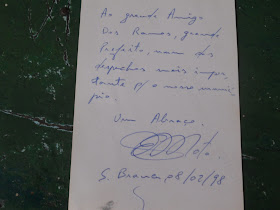 Ao grande Amigo
Dos Ramos, grande
Prefeito, num dos
despachos mais impor
tante p/ o nosso municí
pio.
Um Abraço.
S. Branca 08/02/98